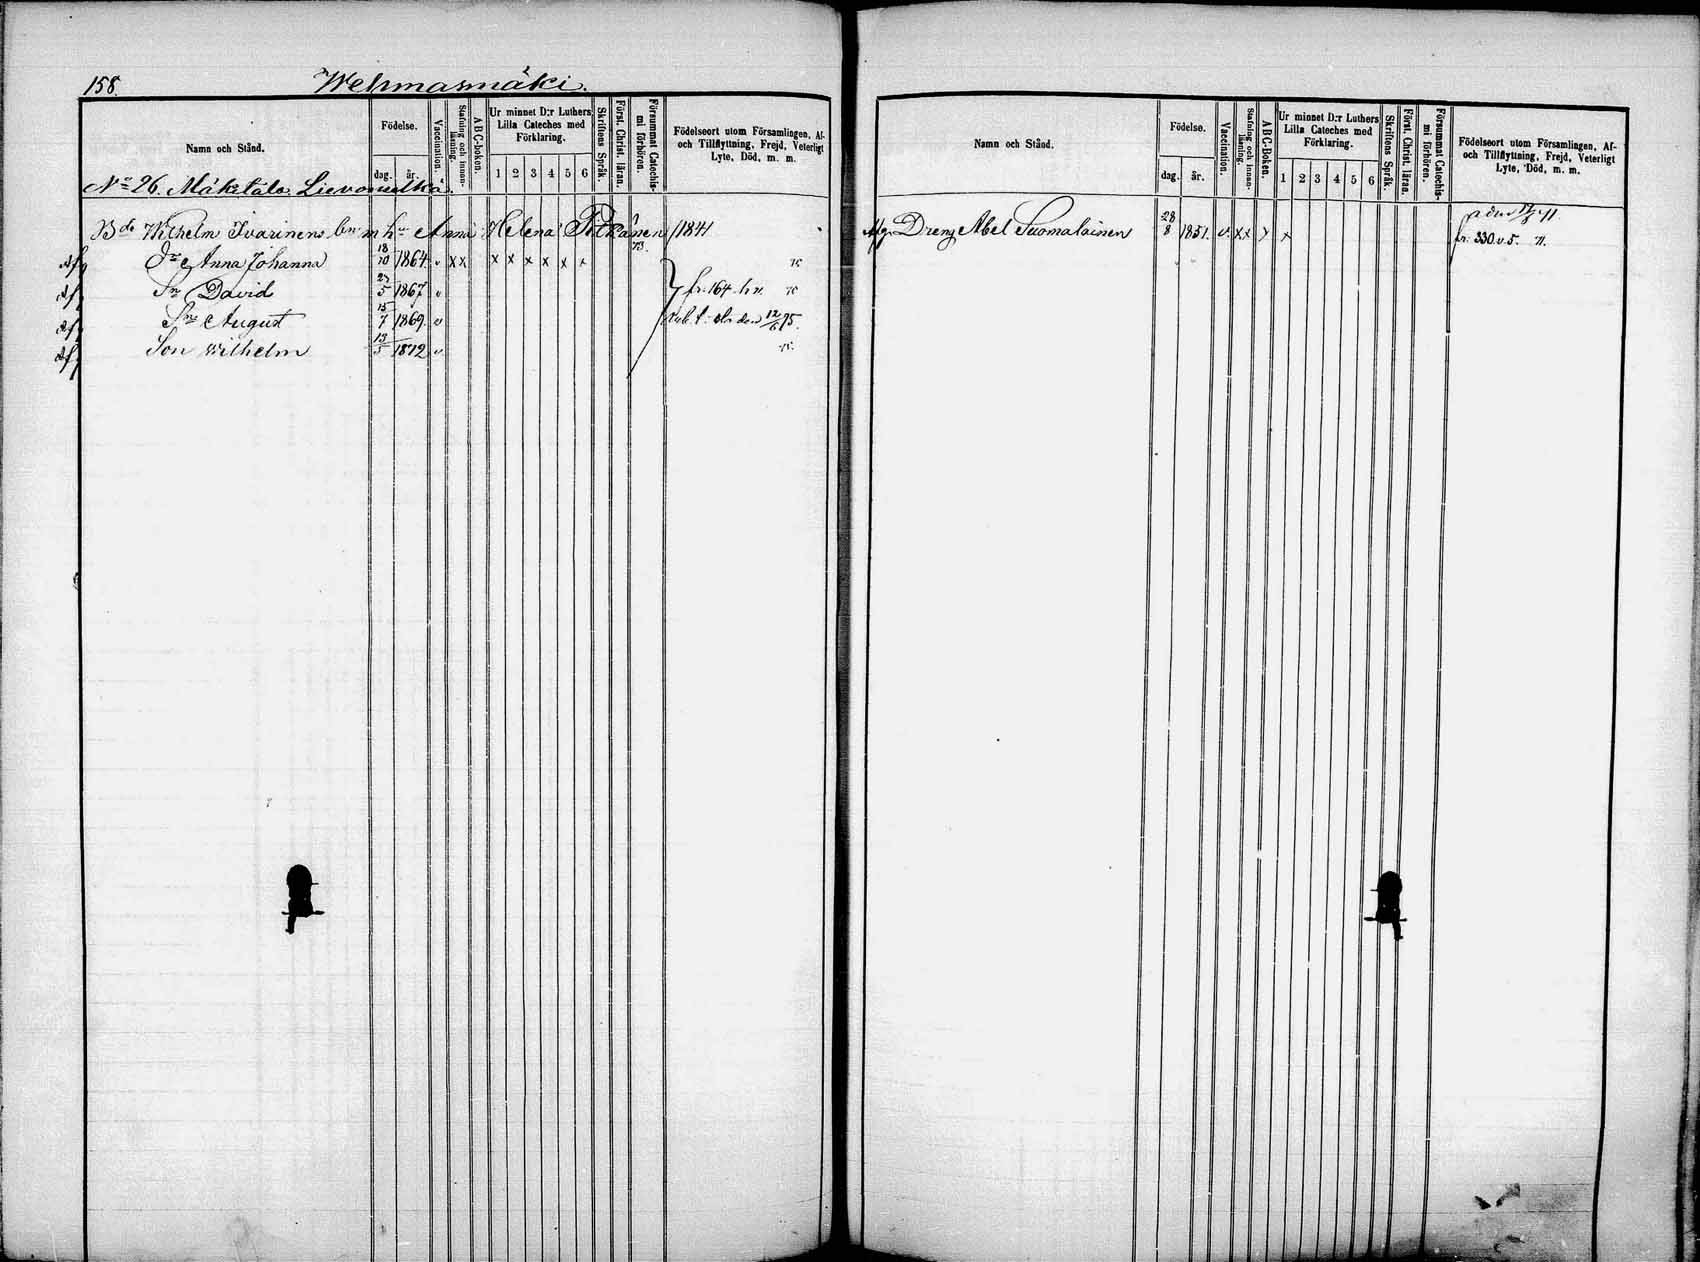 158.
Wehmasmäki.
Namn och Stånd.
Födelse.
dag. år.
Vaccination.
Stafning och innan-läsning.
ABC-boken.
Ur minnet D:r Luthers Lilla Cateches med Förklaring.
1 2 3 4 5 6
Skriftens Språk.
Först. Christ. läran.
Försummat Catechis-mi förhören.
Födelseort utom Församlingen, Af-
och Tillflyttning, Frejd, Veterligt
Lyte, Död, m. m.
No 26. Mäkitalo
Bde Wilhelm Ivarinens m hu Anna Helena Pitkänen /1841
73.
Dr Anna Johanna 18/10 1864. v x x x x x x x x 75
Sn David 27/5 1867 v fr. 164 75
Sn August 15/7 1869. v den 12/6 75.
Son Wilhelm 13/5 1872 v 75.
Namn och Stånd.
Födelse.
dag. år.
Vaccination.
Stafning och innan-läsning.
ABC-Boken.
Ur minnet D:r Luthers Lilla Cateches med Förklaring.
1 2 3 4 5 6
Skriftens Språk.
Först. Christ. läran.
Försummat Catechis-mi förhören.
Födelseort utom Församlingen, Af-
och Tillflyttning, Frejd, Veterligt
Lyte, Död, m. m.
Dreng Abel Suomalainen 28/8 1851. v. x x x x
fr. 330. v. 5. 71.